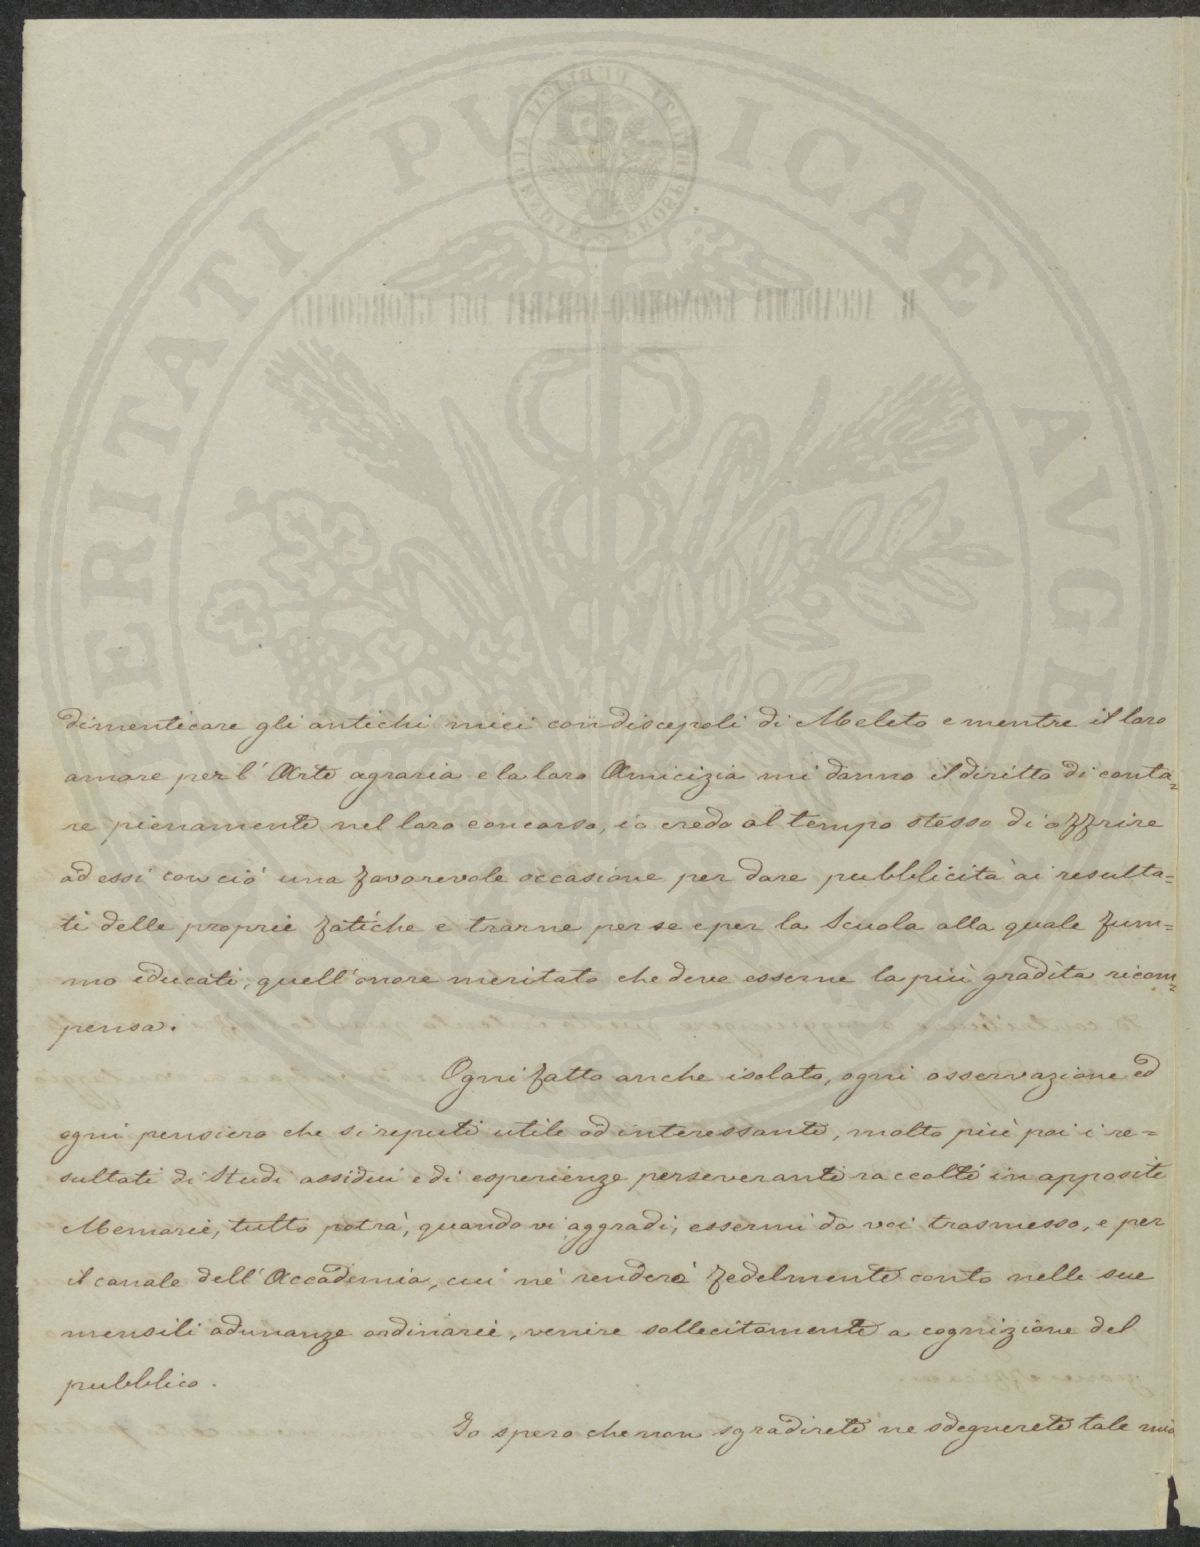 PROSPERITATI PUBLICAE AVGENDAE
R. ACCADEMIA ECONOMICO-AGRARIA DEI GEORGOFILI
dimenticare gli antichi miei condiscepoli di Meleto e mentre il loro
amore per l'Arte agraria e la loro Amicizia mi danno il diritto di conta=
re pienamente nel loro concorso, io credo al tempo stesso di offrire
ad essi con ciò una favorevole occasione per dare pubblicità ai resulta=
ti delle proprie fatiche e trarne per se e per la Scuola alla quale fum=
mo educati, quell'onore meritato che deve esserne la più gradita ricom=
pensa.
Ogni fatto anche isolato, ogni osservazione ed
ogni pensiero che si reputi utile od interessante, molto più poi i re=
sultati di Studi assidui e di esperienze perseveranti raccolti in apposite
Memorie, tutto potrà, quando vi aggradi, essermi da voi trasmesso, e per
il canale dell'Accademia, cui né renderò fedelmente conto nelle sue
mensili adunanze ordinarie, venire sollecitamente a cognizione del
pubblico.
Io spero che non sgradirete ne sdegnerete tale mio